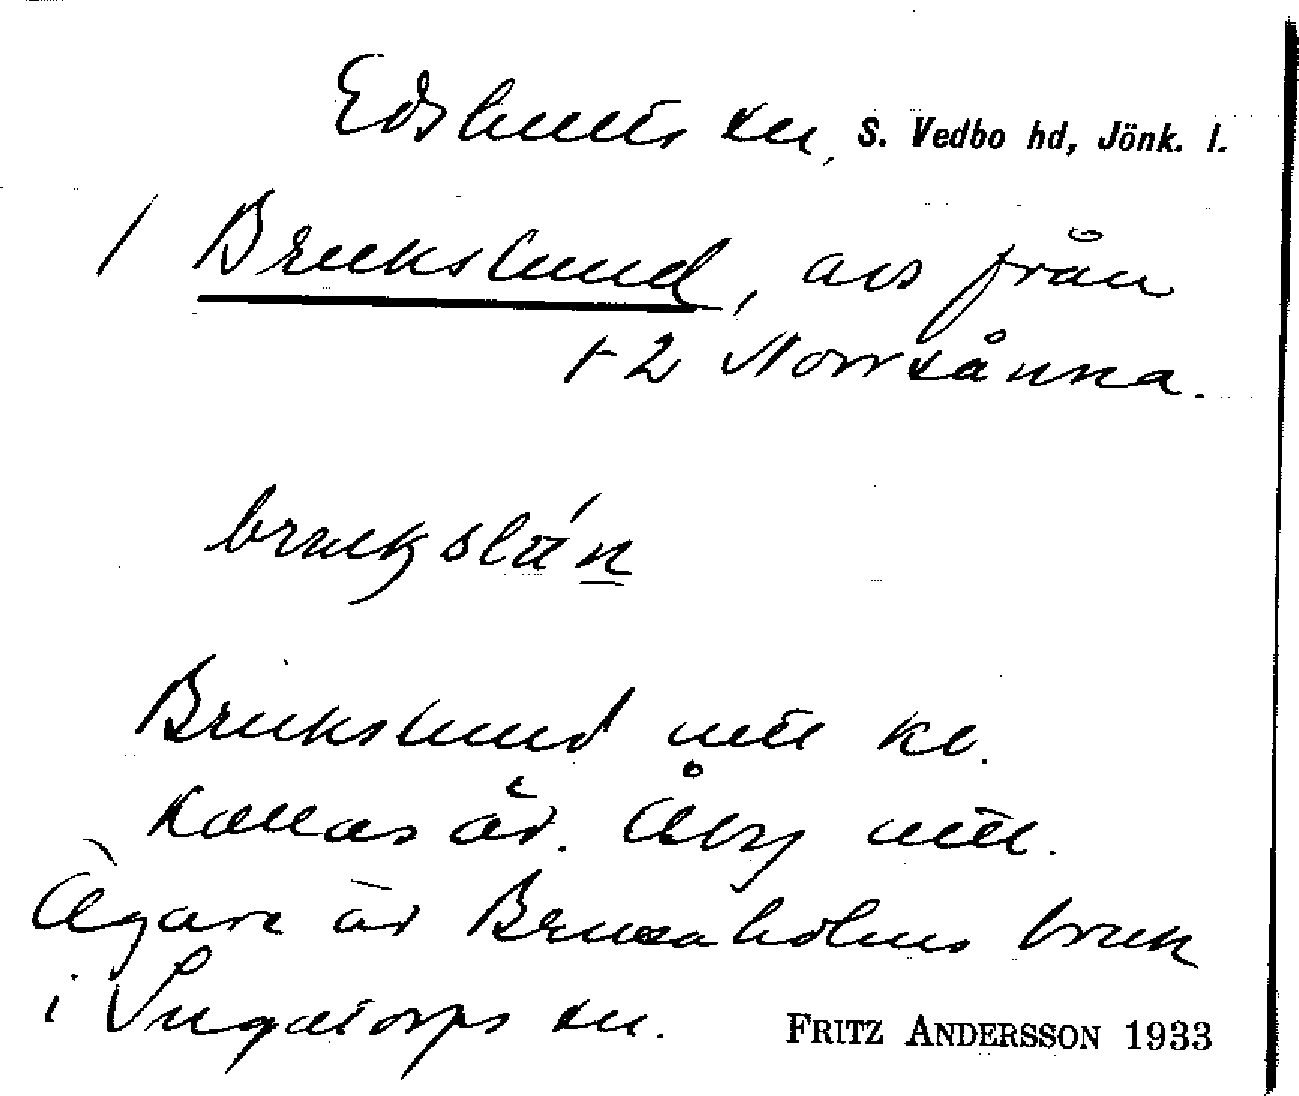 Edshults sn, S. Vedbo hd, Jönk. l.
/ Brukslund, avs från
1-2 Norrsånna.
bruksläǹ
Brukslund mtl kb.
kallas äv. Åby mtl.
Ägare är Bruzaholms bruk
i Ingatorps sn. FRITZ ANDERSSON 1933